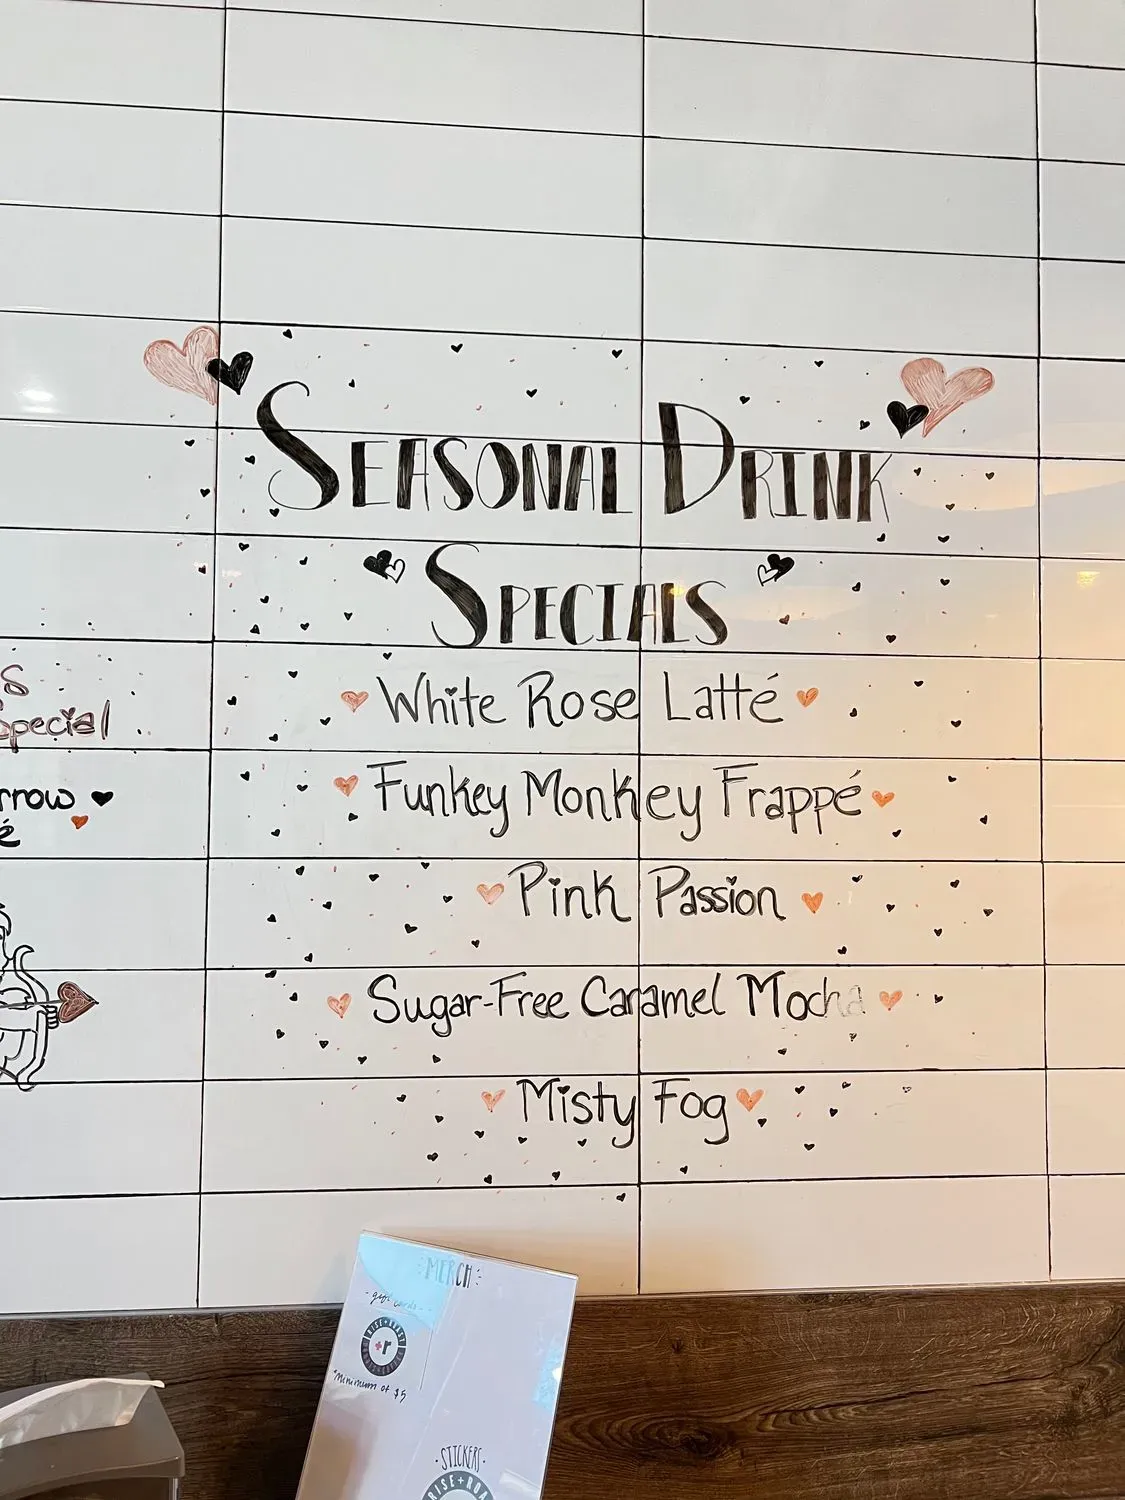 SEASONAL DRINK
SPECIALS
White Rose Latté
Funkey Monkey Frappé
Pink Passion
Sugar-Free Caramel Mocha
Misty Fog
S
Special
rrow
é
MERCH
- gift cards -
RISE + ROAST
+r
*Minimum of $5
· STICKERS ·
RISE + ROA